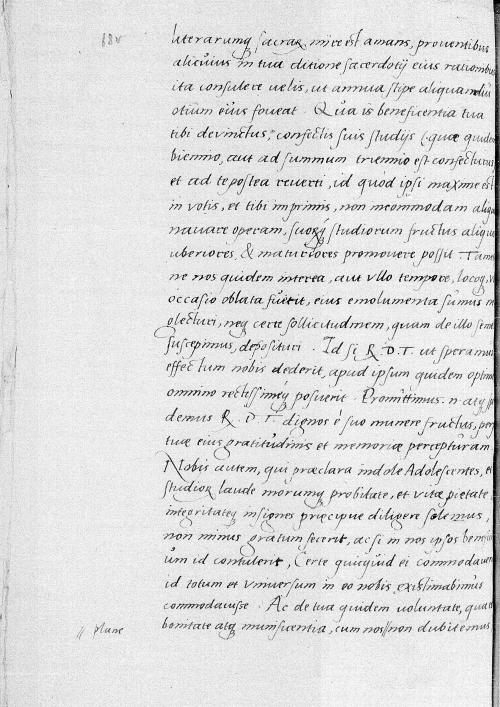 68v
literarumq sacrar mire est amans, proventibus
alicuius in tua ditione sacerdotij eius rationibus
ita consulere velis, ut annua stipe aliquamdiu
otium eius foveat. Qua is beneficentia tua
tibi devinctus, confectis suis studijs (quae quidem
biennio, aut ad summum triennio est confecturus
et ad te postea reverti, id quod ipsi maxime est
in votis, et tibi imprimis, non incommodam aliqu
navare operam, suorq studiorum fructus aliquo
uberiores, & maturiores promovere possit. Tame
ne nos quidem interea, aut ullo tempore, locoq, u
occasio oblata fuerit, eius emolumenta sumus n
olecturi, neq certe sollicitudinem, quam de illo sem
suscepimus, deposituri. Id si R. D. T. ut speramus
effectum nobis dederit, apud ipsum quidem optim
omnino rectissimeq posuerit. Promittimus n. atq sp
demus R. D. T. dignos é suo munere fructus, per
tuae eius gratitudinis et memoriae percepturam
Nobis autem, qui praeclara indole Adolescentes, et
studior laude morumq probitate, et vitae pietate
integritateq insignes praecipue diligere solemus,
non minus gratum fecerit, ac si in nos ipsos benefici
um id contulerit, Certe quicquid ei commodaveri
id totum et universum in eo nobis existimabimus
commodavisse. Ac de tua quidem voluntate, qua d
bonitate atq munificentia, cum nos // non dubitemus
// plane